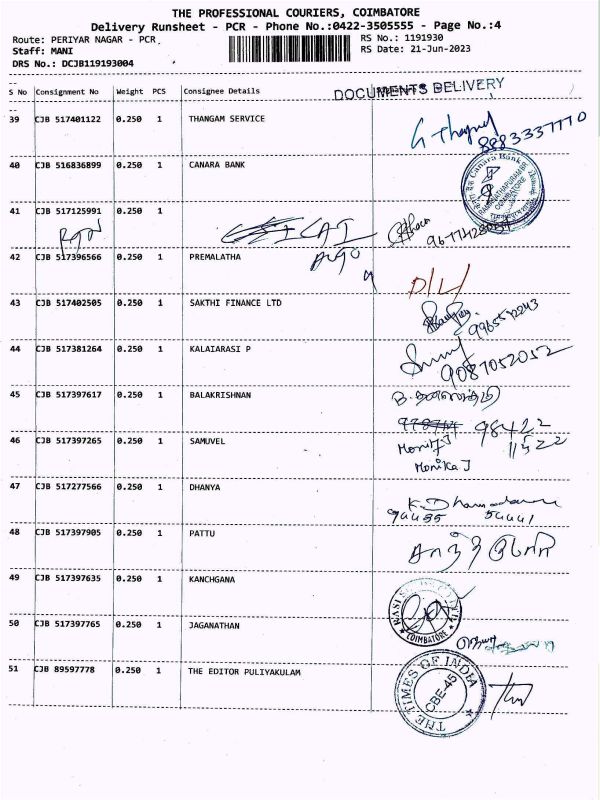 THE PROFESSIONAL COURIERS, COIMBATORE
Delivery Runsheet - PCR - Phone No.:0422-3505555 - Page No.:4
Route: PERIYAR NAGAR - PCR
RS No.: 1191930
Staff: MANI
RS Date: 21-Jun-2023
DRS No.: DCJB119193004
S No Consignment No Weight PCS Consignee Details
DOCUMENTS DELIVERY
39 CJB 517401122 0.250 1 THANGAM SERVICE
8883337770
40 CJB 516836899 0.250 1 CANARA BANK
Canara Bank
COIMBATORE
41 CJB 517125991 0.250 1
42 CJB 517396566 0.250 1 PREMALATHA
D/L
43 CJB 517402505 0.250 1 SAKTHI FINANCE LTD
44 CJB 517381264 0.250 1 KALAIARASI P
9087052052
45 CJB 517397617 0.250 1 BALAKRISHNAN
98422
11522
46 CJB 517397265 0.250 1 SAMUVEL
Monika J
47 CJB 517277566 0.250 1 DHANYA
48 CJB 517397905 0.250 1 PATTU
49 CJB 517397635 0.250 1 KANCHGANA
COIMBATORE
50 CJB 517397765 0.250 1 JAGANATHAN
51 CJB 89597778 0.250 1 THE EDITOR PULIYAKULAM
THE TIMES OF INDIA
CBE-45